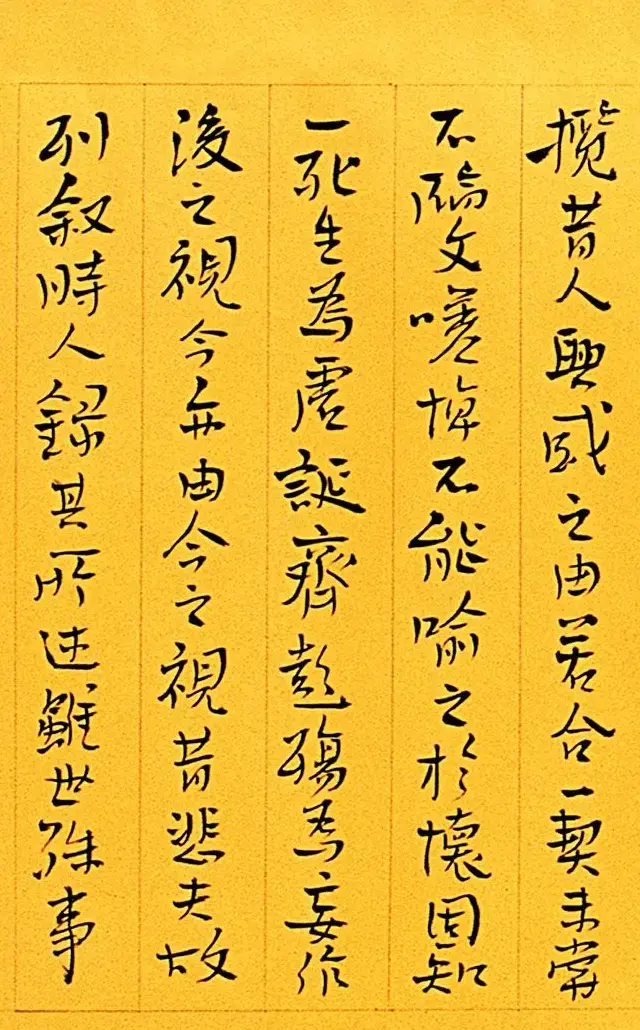 攬昔人興感之由若合一契未嘗
不臨文嗟悼不能喻之於懷固知
一死生為虛誕齊彭殤為妄作
後之視今亦由今之視昔悲夫故
列叙時人錄其所述雖世殊事